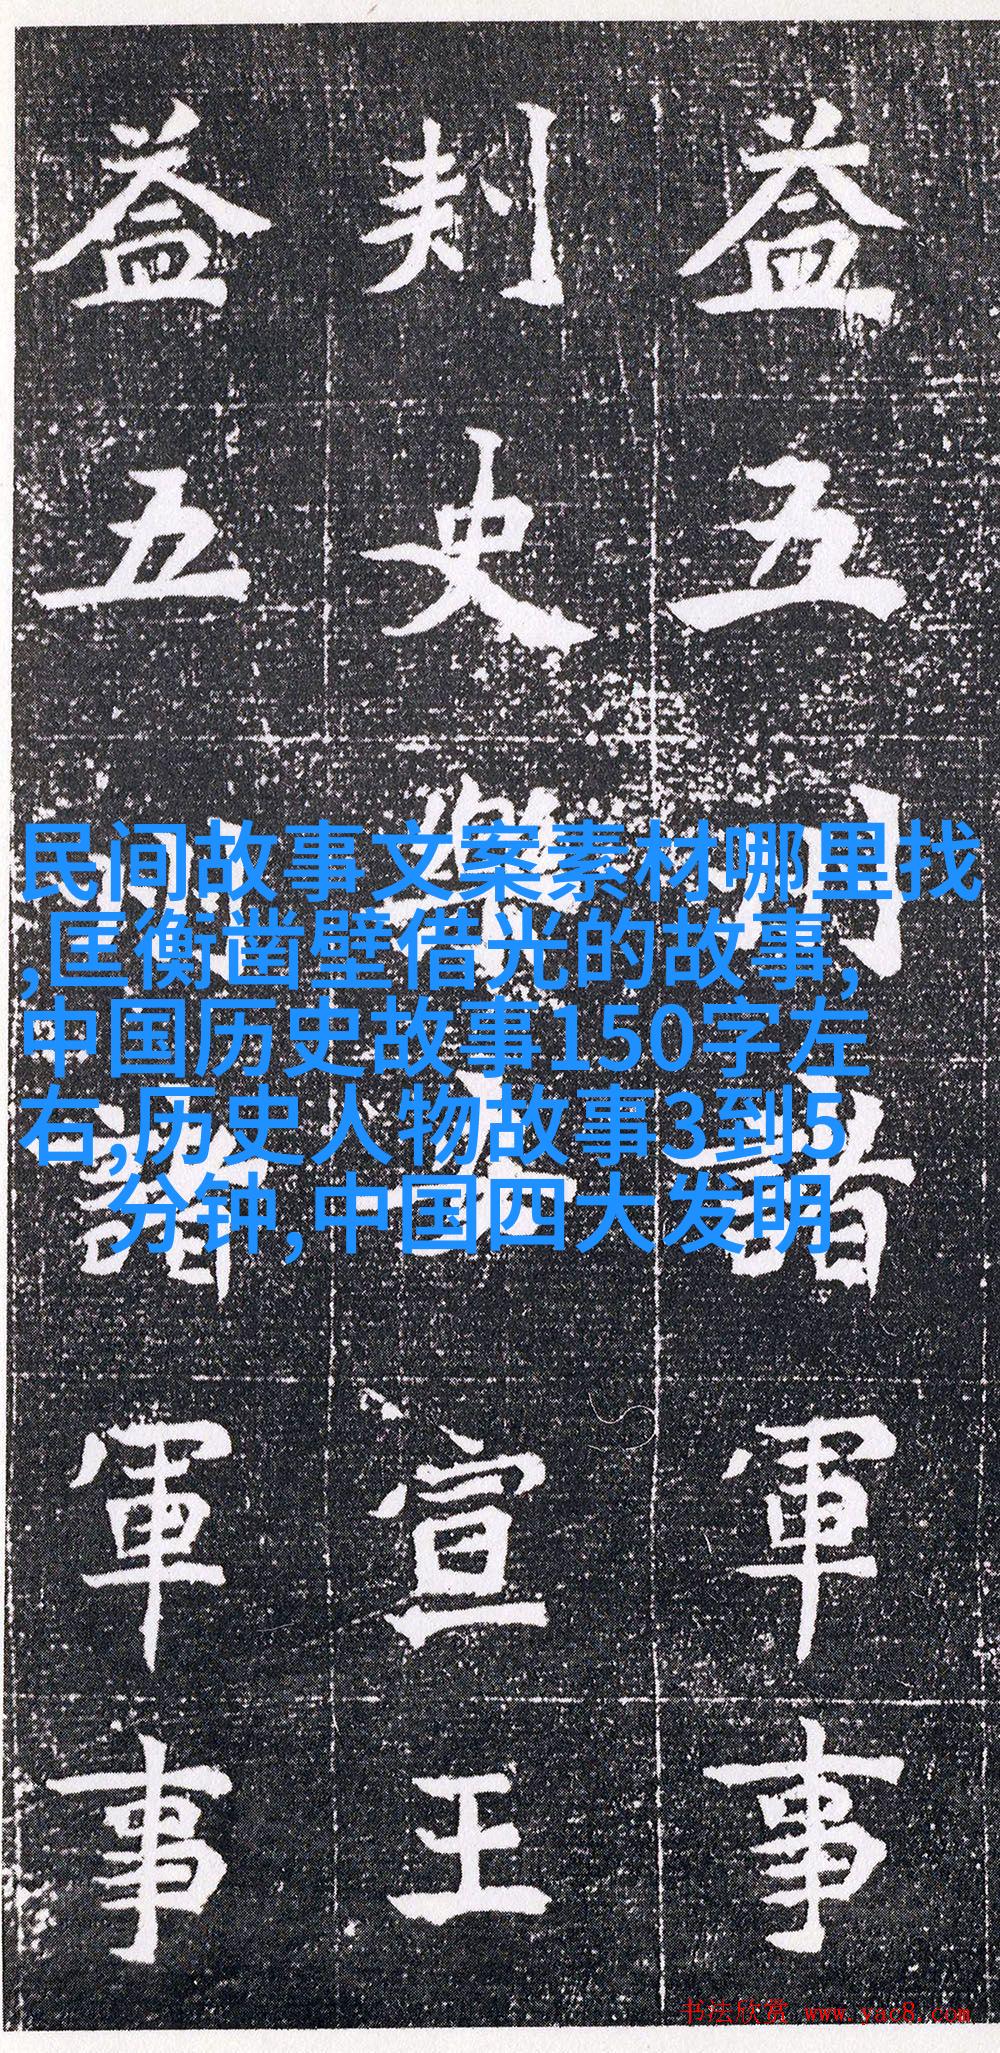 益五州諸軍事
刺史樂宣王
益五州諸軍事
民间故事文案素材哪里找
,匡衡凿壁借光的故事,
中国历史故事150字左
右,历史人物故事3到5
分钟,中国四大发明
书法欣赏 www.yac8.com